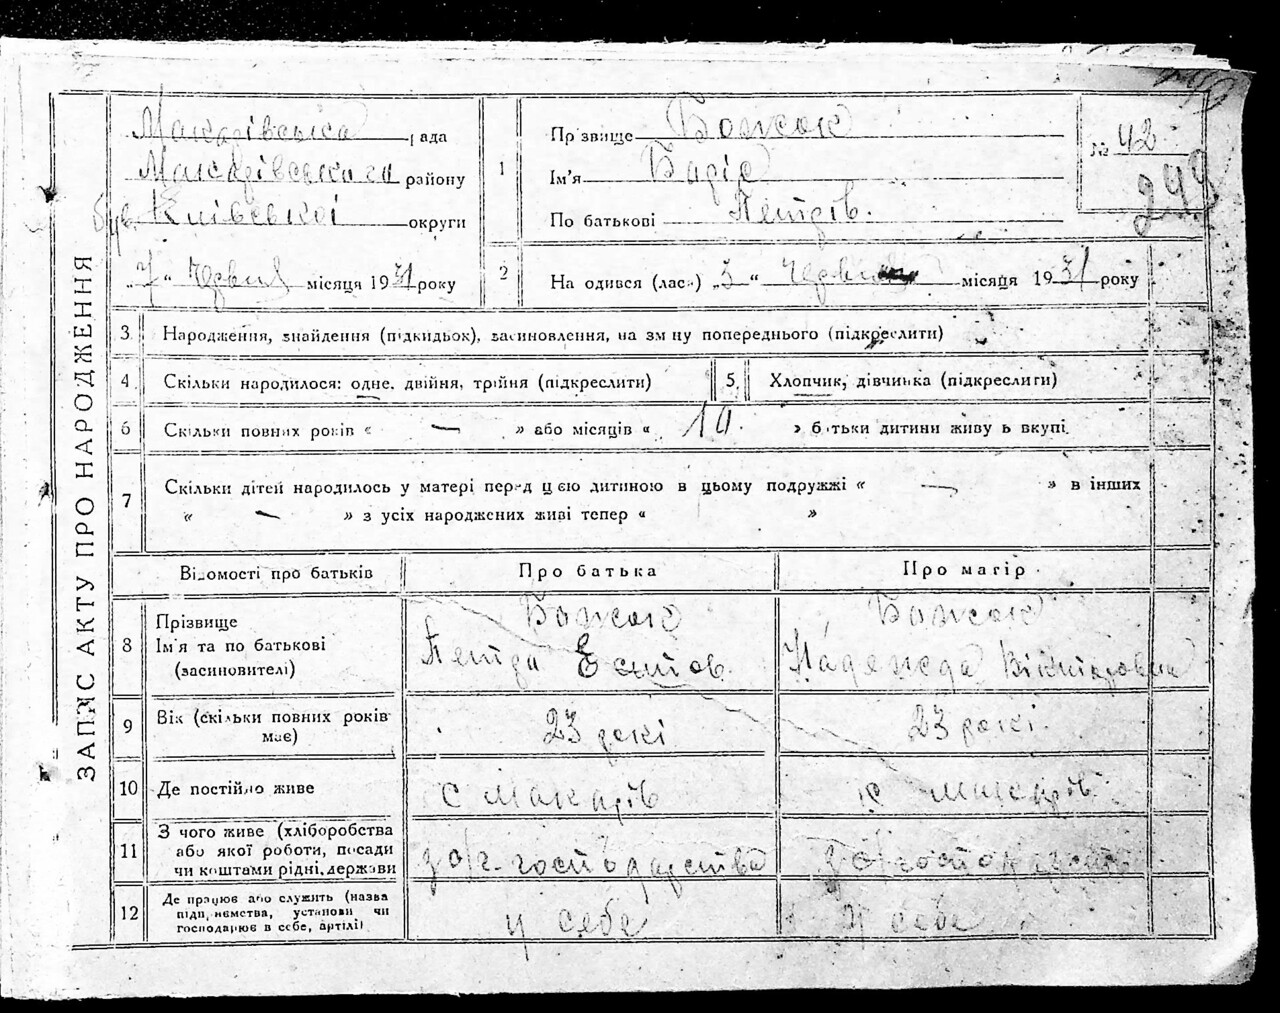 ЗАПИС АКТУ ПРО НАРОДЖЕННЯ
Макарівська рада
Макарівського району
був. Київської округи
„7“ Червня місяця 1931 року
1
Прізвище Божок
Ім'я Боріс
По батькові Петрів.
№ 42
299
2
На одився (лась) „3“ Червня місяця 1931 року
3 Народження, знайдення (підкидьок), засиновлення, на зміну попереднього (підкреслити)
4 Скільки народилося: одне, двійня, трійня (підкреслити)
5. Хлопчик, дівчинка (підкреслити)
6 Скільки повних років « — » або місяців « 10. » батьки дитини живуть вкупі.
7 Скільки дітей народилось у матері перед цією дитиною в цьому подружжі « — » в інших
« — » з усіх народжених живі тепер « »
Відомості про батьків
Про батька
Про матір
8 Прізвище
Ім'я та по батькові
(засиновителі)
Божок
Петро
Божок
Надежда
9 Вік (скільки повних років
має)
23 рокі
23 рокі
10 Де постійно живе
с Макарів
с Макарів
11 З чого живе (хліборобства
або якої роботи, посади
чи коштами рідні, держави
з с/г. господарства
з с/господарств
12 Де працює або служить (назва
підприємства, установи чи
господарює в себе, артілі)
у себе
у себе